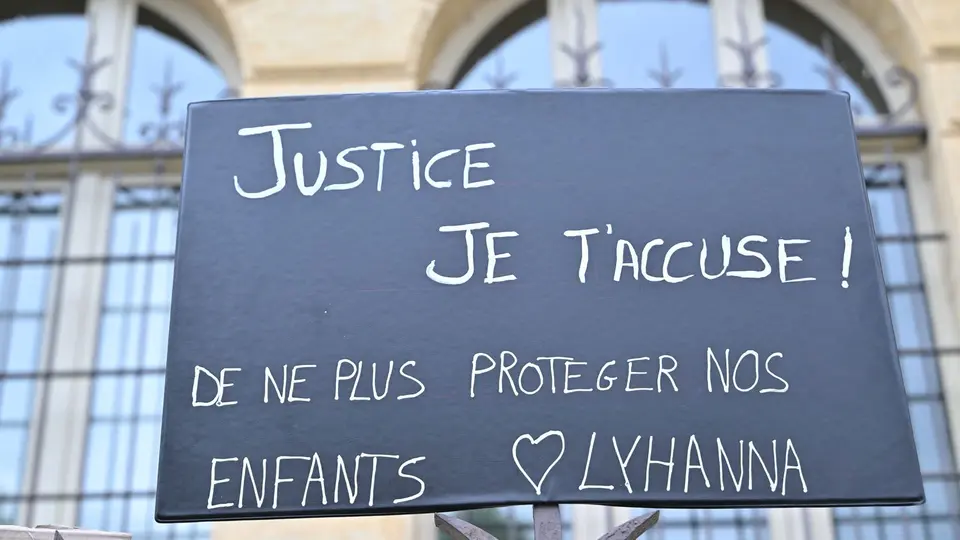 JUSTICE
JE T'ACCUSE !
DE NE PLUS PROTEGER NOS
ENFANTS ♡ LYHANNA